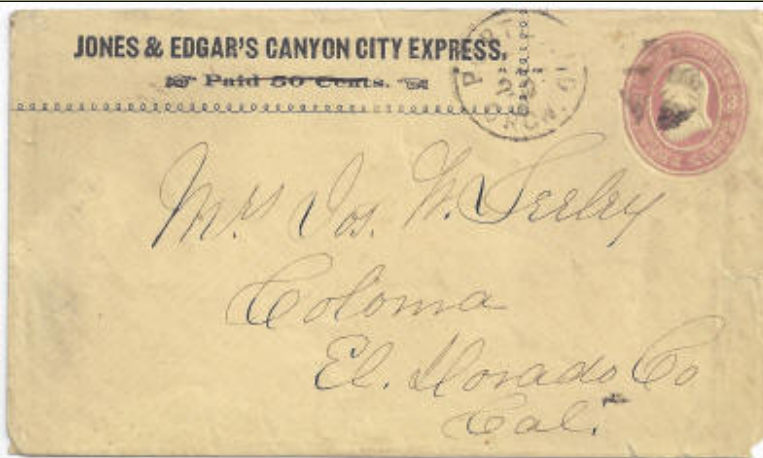 JONES & EDGAR'S CANYON CITY EXPRESS.
Paid 50 Cents.
Mrs Jos. W. Seeley
Coloma
El. Dorado Co
Cal.